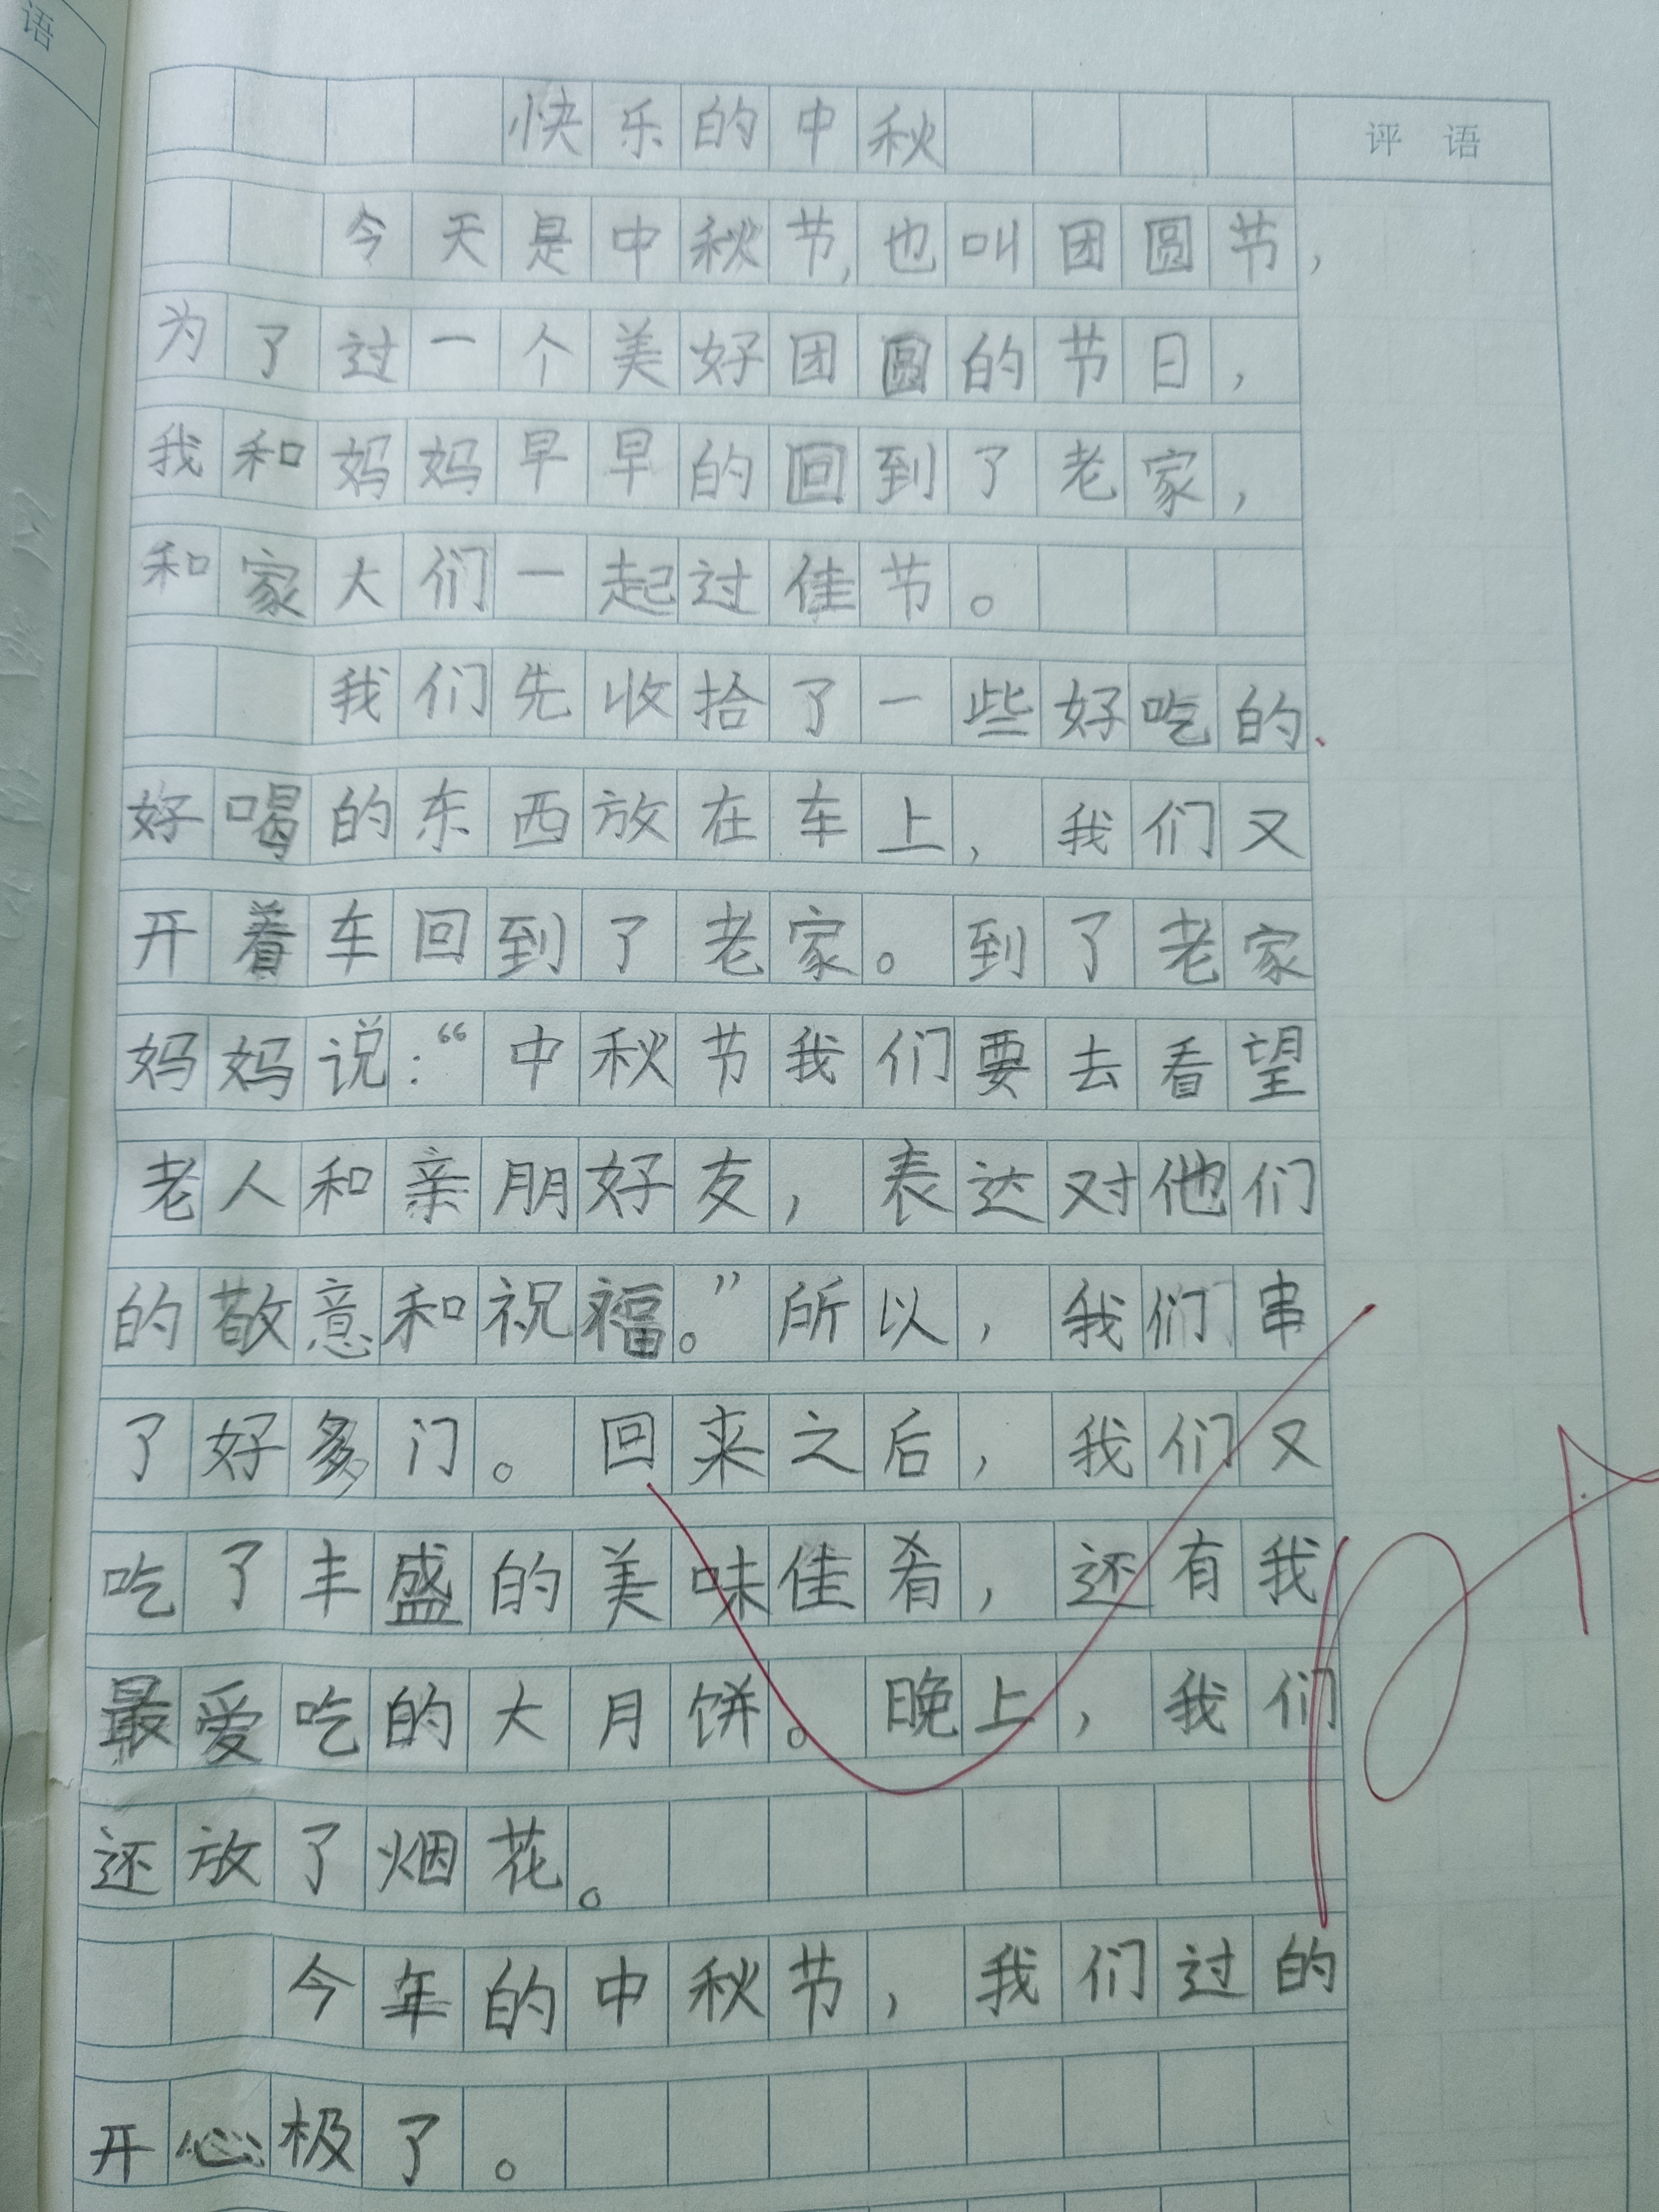 语
快乐的中秋
评语
今天是中秋节,也叫团圆节,
为了过一个美好团圆的节日,
我和妈妈早早的回到了老家,
和家大们一起过佳节。
我们先收拾了一些好吃的、
好喝的东西放在车上,我们又
开着车回到了老家。到了老家
妈妈说:“中秋节我们要去看望
老人和亲朋好友,表达对他们
的敬意和祝福。”所以,我们串
了好多门。回来之后,我们又
吃了丰盛的美味佳肴,还有我
最爱吃的大月饼。晚上,我们
还放了烟花。
今年的中秋节,我们过的
开心极了。